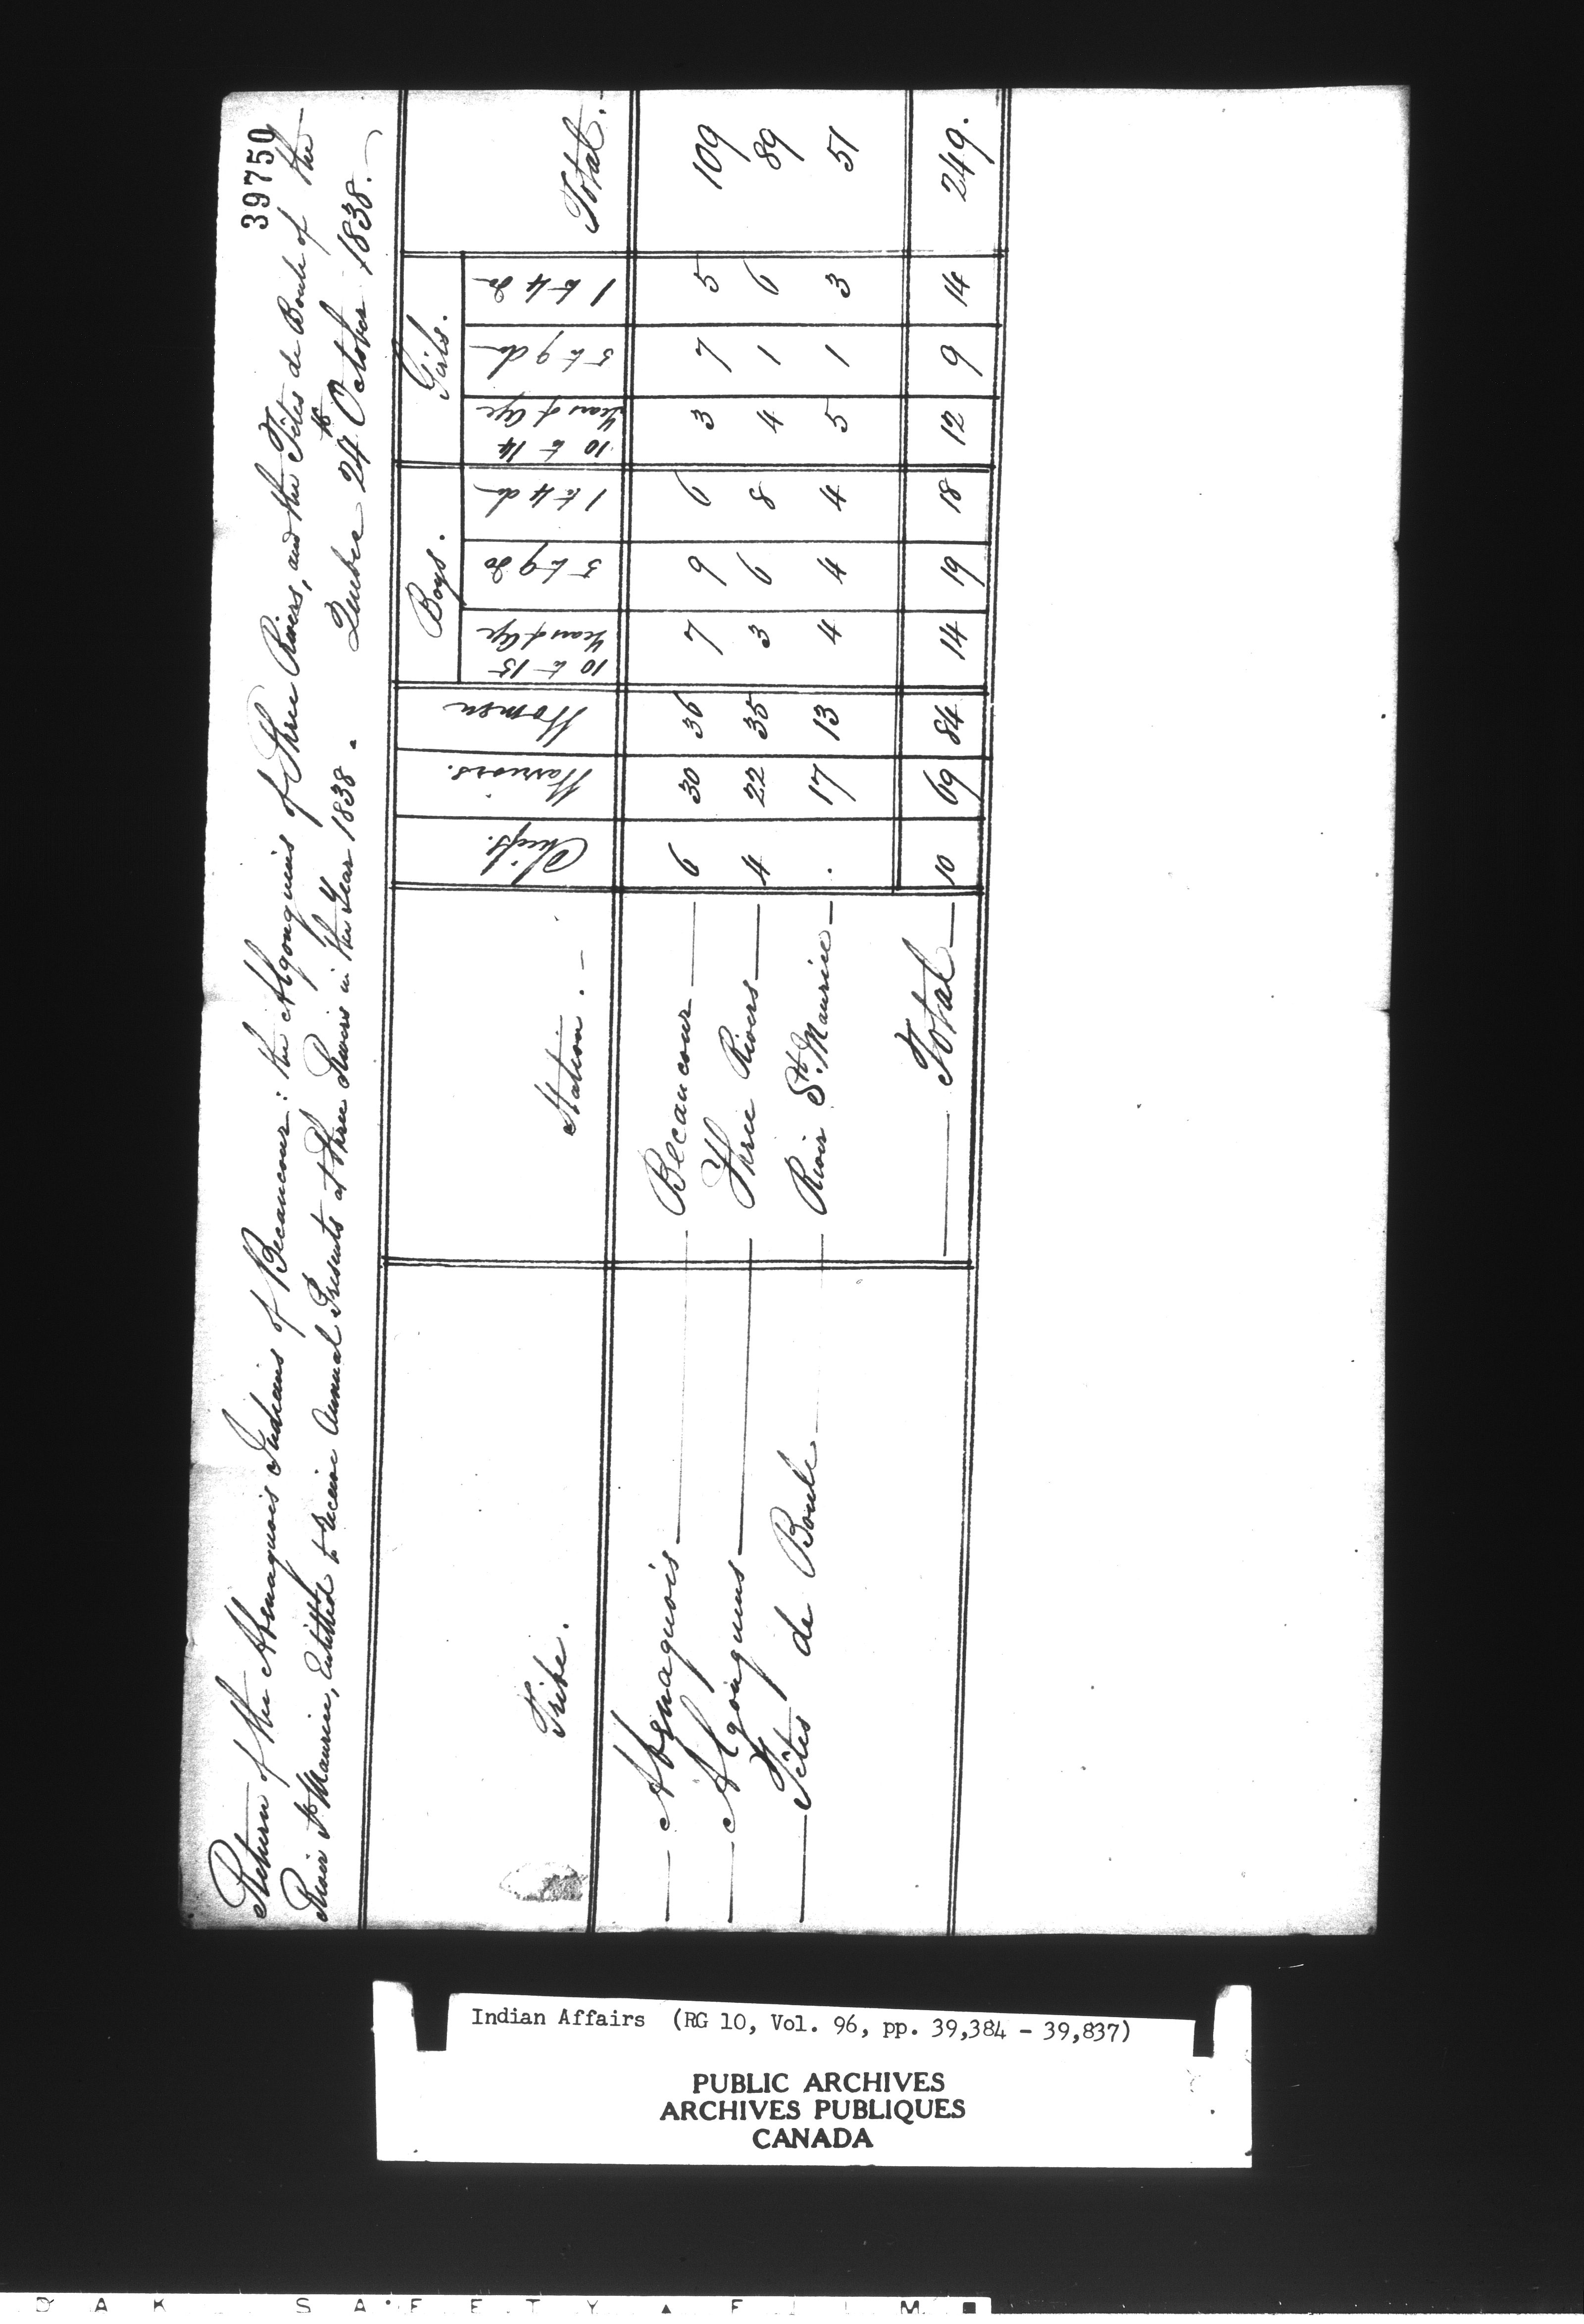 39750
Return of the Abenaquois Indians of Becancour: the Algonquins of Three Rivers, and the Têtes de Boule of the
River St. Maurice, Entitled to receive Annual Presents at Three Rivers in the Year 1838.
Quebec 24th October 1838.
Tribe. Station. Chiefs. Warriors. Women Boys. Girls. Total.
10 to 15 Years of Age 5 to 9 do 1 to 4 do 10 to 14 Years of Age 5 to 9 do 1 to 4 do
Abenaquois Becancour 6 30 36 7 9 6 3 7 5 109
Algonquins Three Rivers 4 22 35 3 6 8 4 1 6 89
Têtes de Boule River St. Maurice . 17 13 4 4 4 5 1 3 51
Total 10 69 84 14 19 18 12 9 14 249.
Indian Affairs (RG 10, Vol. 96, pp. 39,384 - 39,837)
PUBLIC ARCHIVES
ARCHIVES PUBLIQUES
CANADA
SAFETY FILM